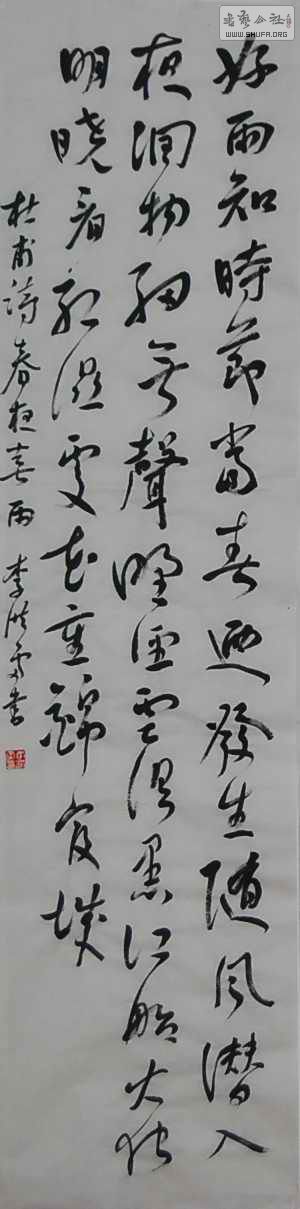 好雨知時節當春迺發生随風潜入
夜润物細无聲野徑雲俱黑江船火独
明曉看紅濕處花重錦官城
杜甫詩春夜喜雨 李洪書
書藝公社
WWW.SHUFA.ORG